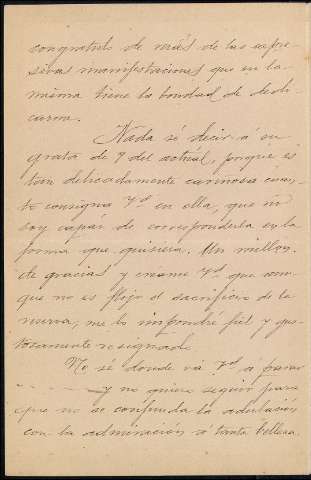 congratulo de más de las expre-
sivas manifestaciones que en la
misma tiene la bondad de dedi-
carme.
Nada sé decir á su
grata de 9 del actual, porque es
tan delicadamente cariñoso cuan-
to consigna Vd en ella, que no
soy capaz de corresponderla en la
forma que quisiera. Un millon
de gracias y creame Vd que aun-
que no es flojo el sacrificio de la
nueva, me lo impondré fiel y gus-
tosamente resignado.
No sé donde vá Vd á parar
y no quiero seguir para
que no se confunda la adulación
con la admiración á tanta belleza.